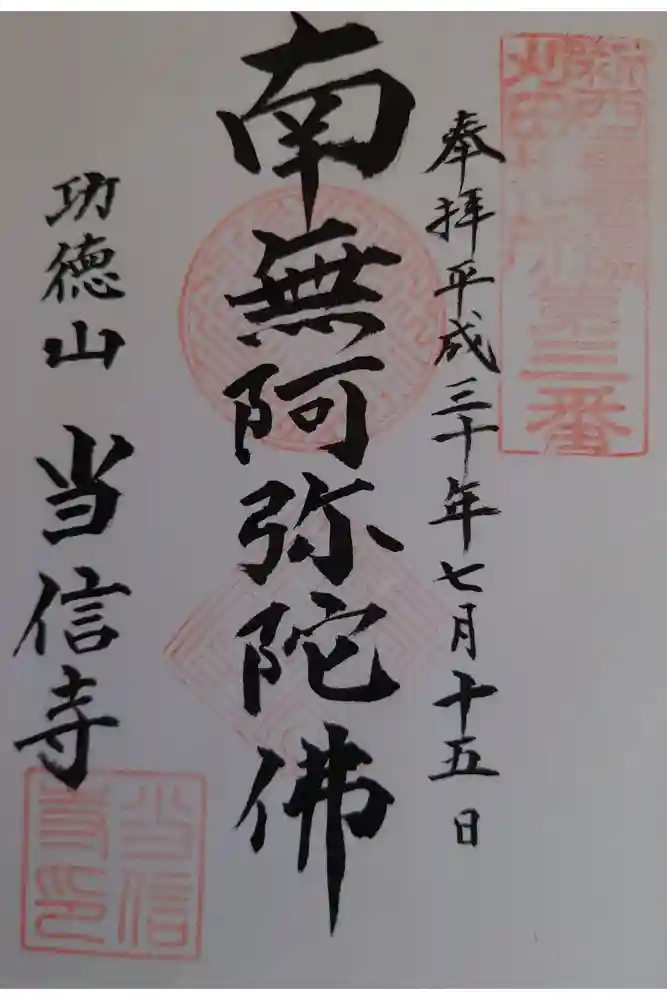 奉拝平成三十年七月十五日
南無阿弥陀佛
功徳山 当信寺
第三番
当信
寺印